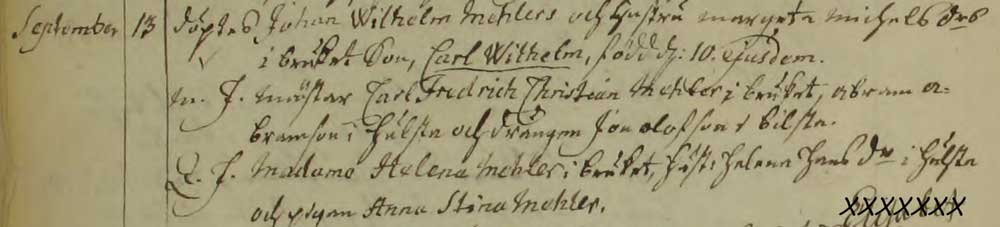 September 13 döptes Johan Wilhelm Mehlers och hustru margeta michels dr
i bruket Son, Carl Wilhelm, född d: 10. ejusdem.
m. f. mästar Carl Fredrich Christian Mehler i bruket, abram a-
bramson i hulsta och drängen Jon olofson i bilsta.
Q. f. Madame Helena Mehler i bruket, hust: Helena Hans dr i hulsta
och pigan Anna Stina Mehler.
XXXXXXX